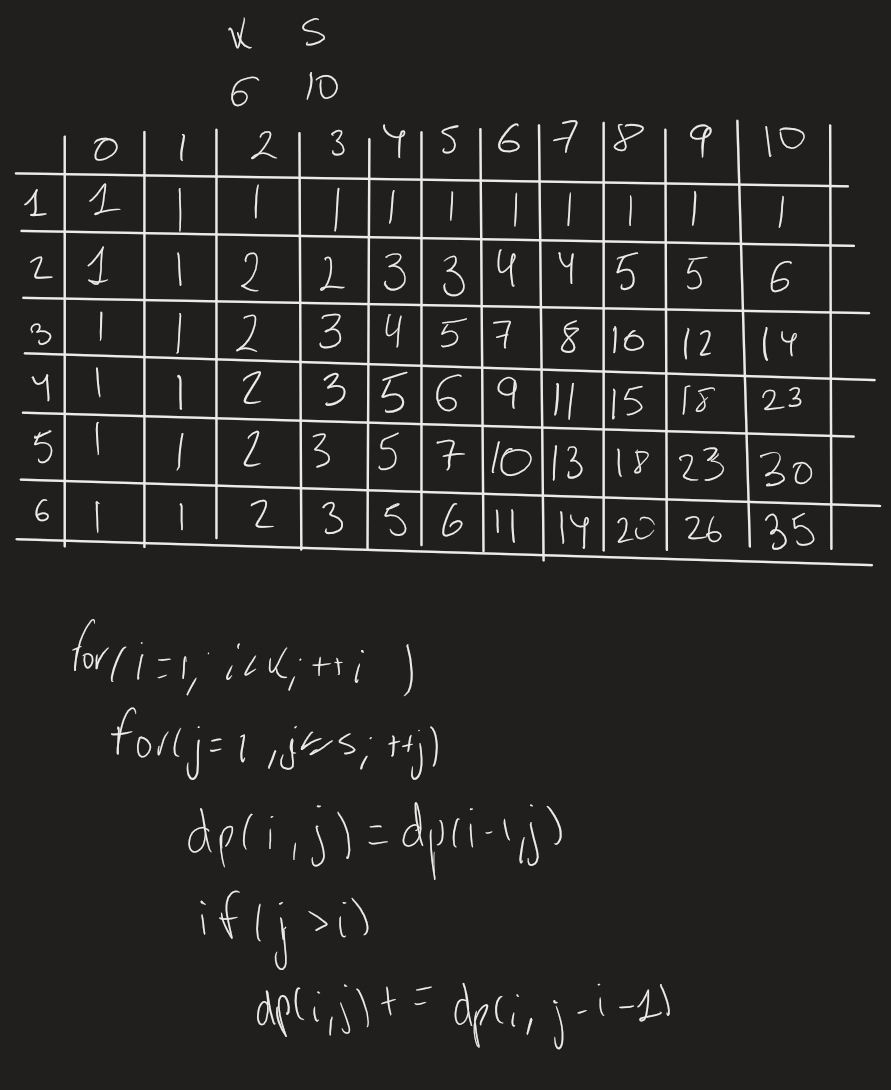 K S
6 10
0 1 2 3 4 5 6 7 8 9 10
1 1 1 1 1 1 1 1 1 1 1 1
2 1 1 2 2 3 3 4 4 5 5 6
3 1 1 2 3 4 5 7 8 10 12 14
4 1 1 2 3 5 6 9 11 15 18 23
5 1 1 2 3 5 7 10 13 18 23 30
6 1 1 2 3 5 6 11 14 20 26 35
for(i=1; i<K; ++i )
for(j=1 ,j<=s; ++j)
dp(i,j)=dp(i-1,j)
if(j>i)
dp(i,j)+= dp(i, j-i-1)